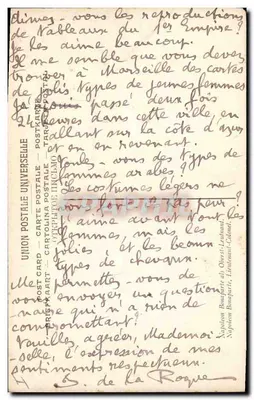 aimez-vous les reproductions
de tableaux du 1er empire?
Je les aime beaucoup.
Il me semble que vous devez
trouver à Marseille des cartes
de jolis types de jeunes femmes
j'ai passé deux fois
24 heures dans cette ville, en
allant sur la côte d'azur
et en en revenant.
voulez-vous des types de
femmes arabes?
les costumes légers ne
vous font pas peur?
J'aime avant tout les
femmes, mais les
jolies et les beaux
types de chevaux.
Me permettez-vous de
vous envoyer un question-
naire qui n'a rien de
compromettant?
Veuillez agréer, Mademoi-
selle, l'expression de mes
sentiments respectueux.
de La Roque
UNION POSTALE UNIVERSELLE
POST CARD — CARTE POSTALE — POSTKARTE
Napoleon Bonaparte als Oberst-Leutnant.
Napoléon Bonaparte, Lieutenant-Colonel.